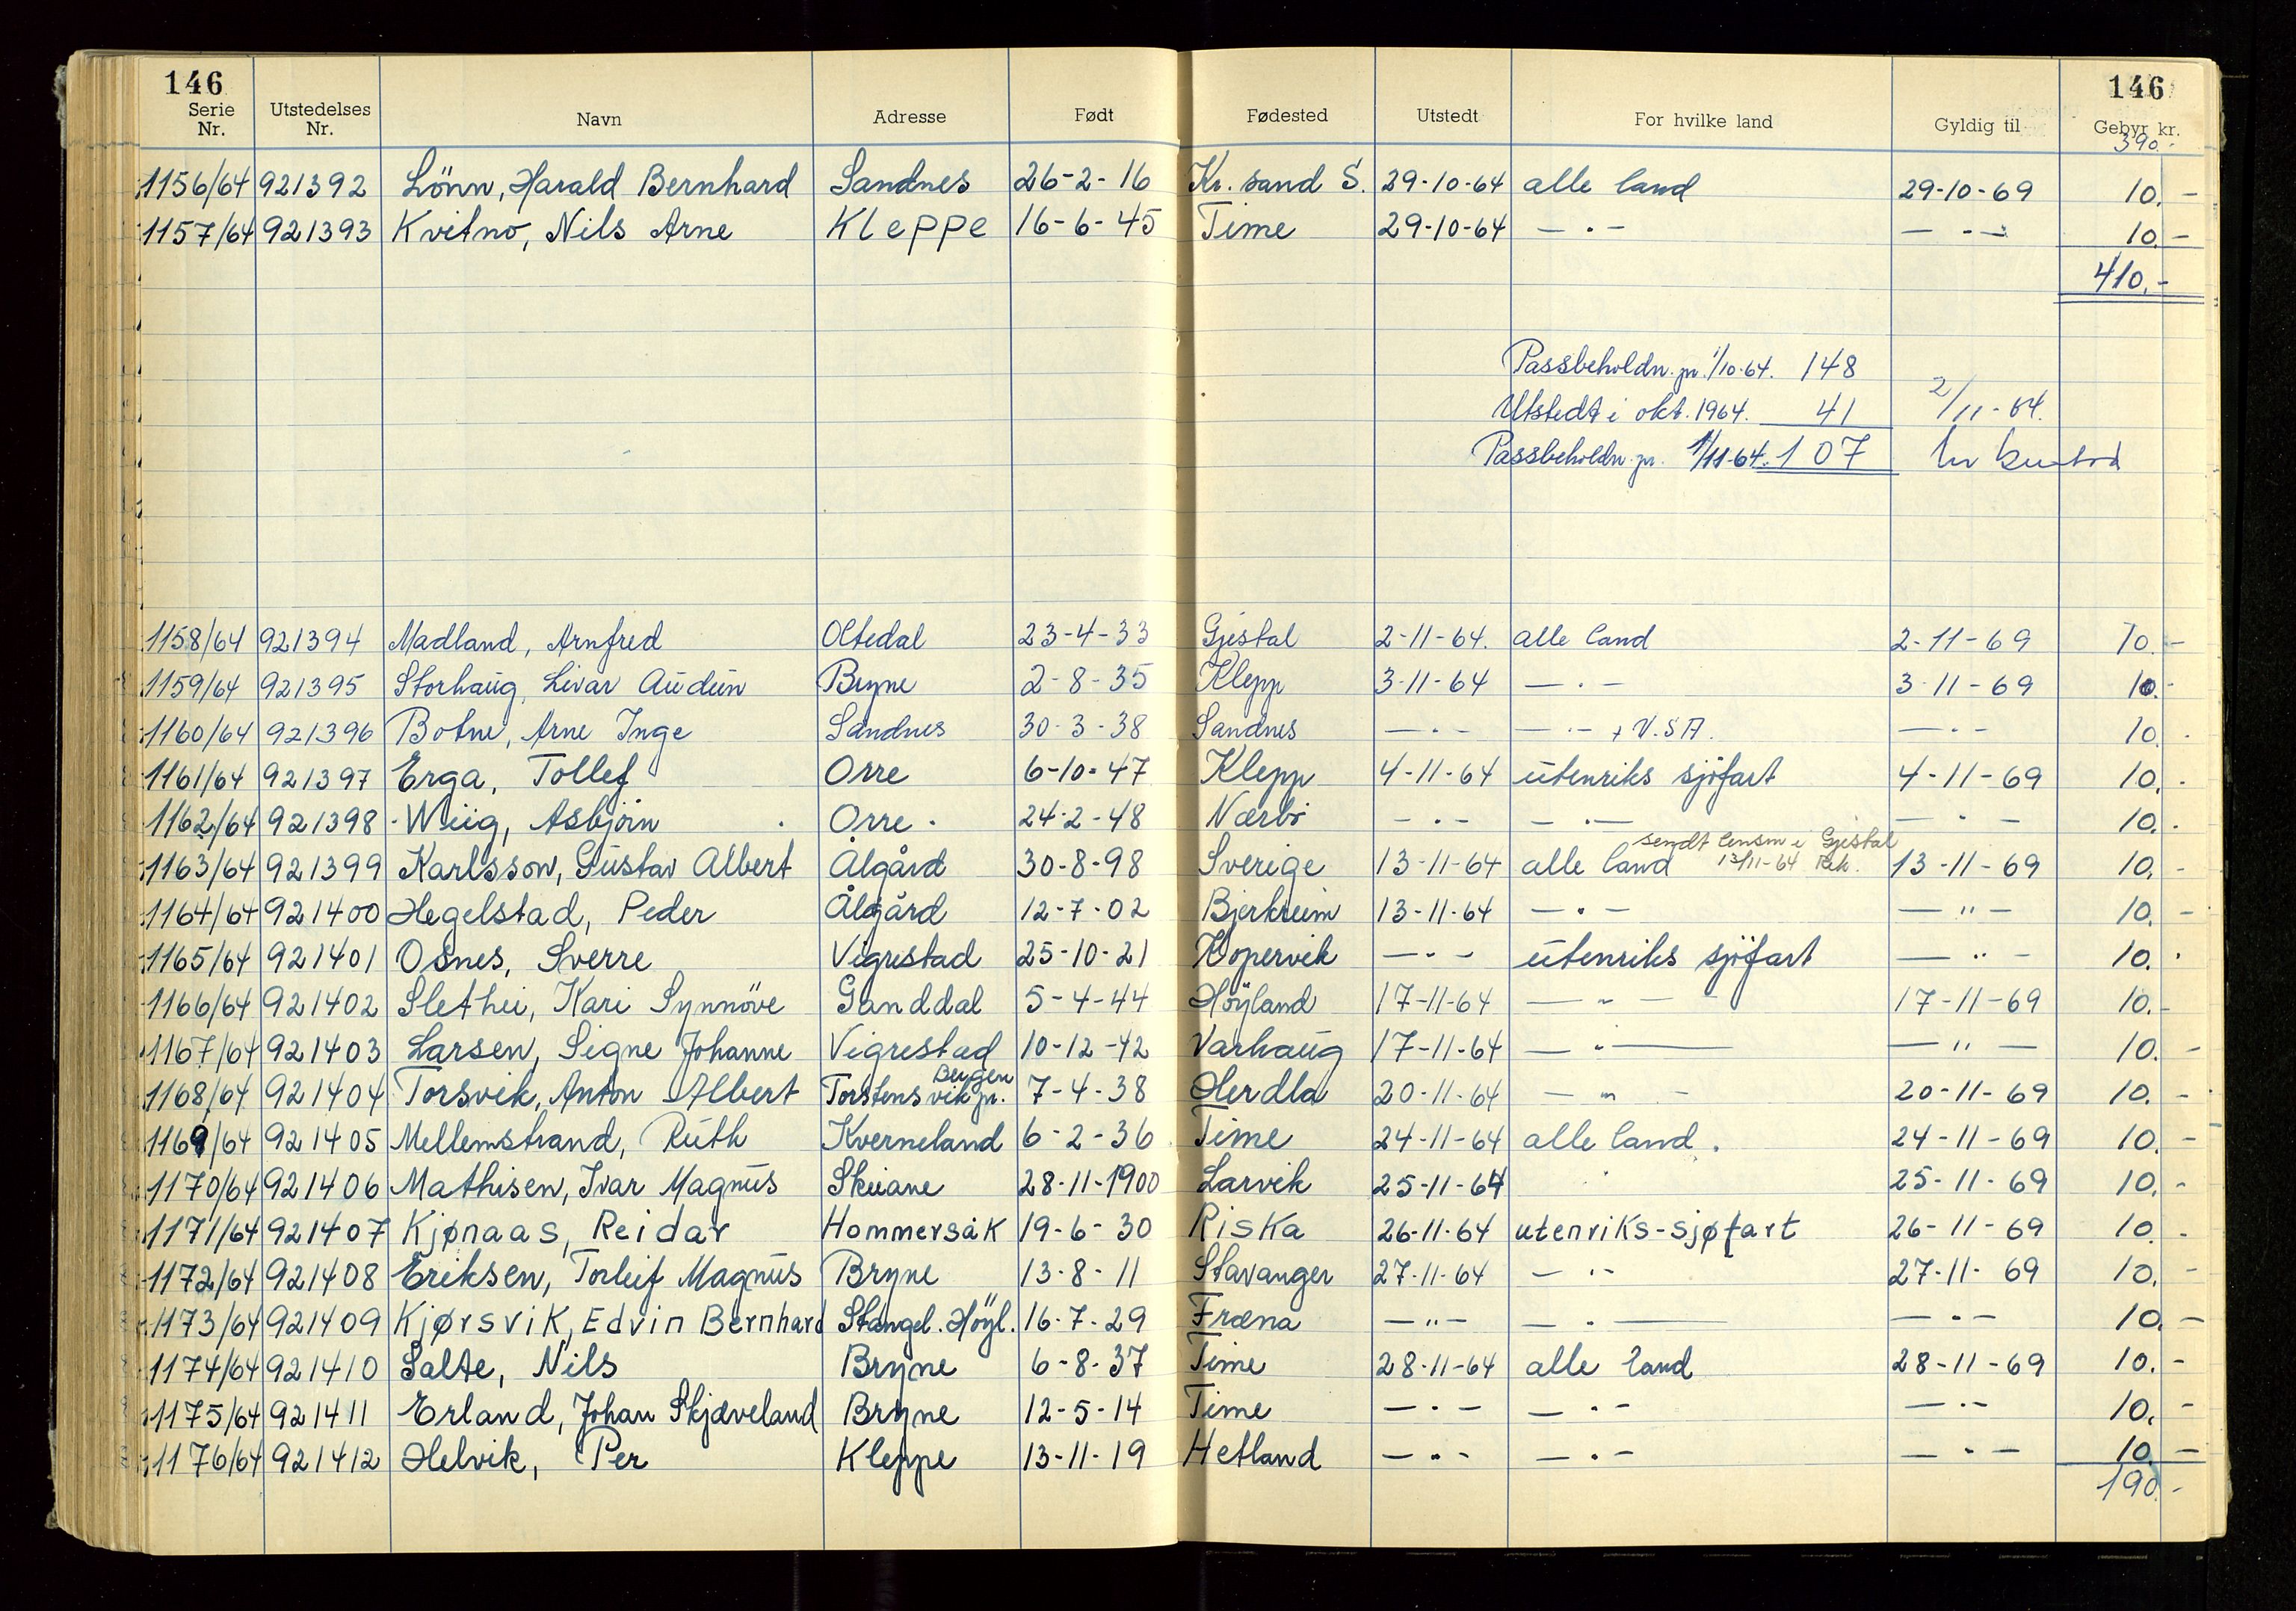 146 146
Serie Nr. Utstedelses Nr. Navn Adresse Født Fødested Utstedt For hvilke land Gyldig til Gebyr kr.
390.-
1156/64 921392 Lönn, Harald Bernhard Sandnes 26-2-16 Kr. sand S. 29-10-64 alle land 29-10-69 10.-
1157/64 921393 Kvitno, Nils Arne Kleppe 16-6-45 Time 29-10-64 — · — — · — 10.-
410.-
Passbeholdn. pr. 1/10-64. 148
Utstedt i okt. 1964. 41 2/11-64.
Passbeholdn. pr. 1/11-64. 107
1158/64 921394 Madland, Arnfred Oltedal 23-4-33 Gjestal 2-11-64. alle land 2-11-69 10.-
1159/64 921395 Storhaug, Livar Audun Bryne 2-8-35 Klepp 3-11-64 — · — 3-11-69 10.-
1160/64 921396 Botne, Arne Inge Sandnes 30-3-38 Sandnes — · — — · — + U.S.A. — · — 10.-
1161/64 921397 Erga, Tollef Orre 6-10-47 Klepp 4-11-64 utenriks sjöfart 4-11-69 10.-
1162/64 921398 Wiig, Asbjörn Orre 24-2-48 Nærbö — · — — · — — · — 10.-
sendt lensm i Gjestal
1163/64 921399 Karlsson, Gustav Albert Ålgård 30-8-98 Sverige 13-11-64 alle land 13/11-64 13-11-69 10.-
1164/64 921400 Hegelstad, Peder Ålgård 12-7-02 Bjerkreim 13-11-64 — · — — " — 10.-
1165/64 921401 Osnes, Sverre Vigrestad 25-10-21 Kopervik — " — utenriks sjöfart — " — 10.-
1166/64 921402 Slethei, Kari Synnöve Ganddal 5-4-44 Höyland 17-11-64 — " — 17-11-69 10.-
1167/64 921403 Larsen, Signe Johanne Vigrestad 10-12-42 Varhaug 17-11-64 — " — — " — 10.-
Bergen
1168/64 921404 Torsvik, Anton Albert Torstensvik pr. 7-4-38 Herdla 20-11-64 — " — 20-11-69 10.-
1169/64 921405 Mellemstrand, Ruth Kverneland 6-2-36 Time 24-11-64 alle land. 24-11-69 10.-
1170/64 921406 Mathisen, Ivar Magnus Skeiane 28-11-1900 Larvik 25-11-64 " 25-11-69 10.-
1171/64 921407 Kjønaas, Reidar Hommersåk 19-6-30 Riska 26-11-64 utenriks-sjøfart 26-11-69 10.-
1172/64 921408 Eriksen, Torleif Magnus Bryne 13-8-11 Stavanger 27-11-64 — " — 27-11-69 10.-
1173/64 921409 Kjørsvik, Edvin Bernhard Stangel. Höyl. 16-7-29 Fræna — " — — · — — · — 10.-
1174/64 921410 Salte, Nils Bryne 6-8-37 Time 28-11-64 alle land 28-11-69 10.-
1175/64 921411 Erland, Johan Skjæveland Bryne 12-5-14 Time — · — — · — — · — 10.-
1176/64 921412 Helvik, Per Kleppe 13-11-19 Hetland — " — — · — — · — 10.-
190.-